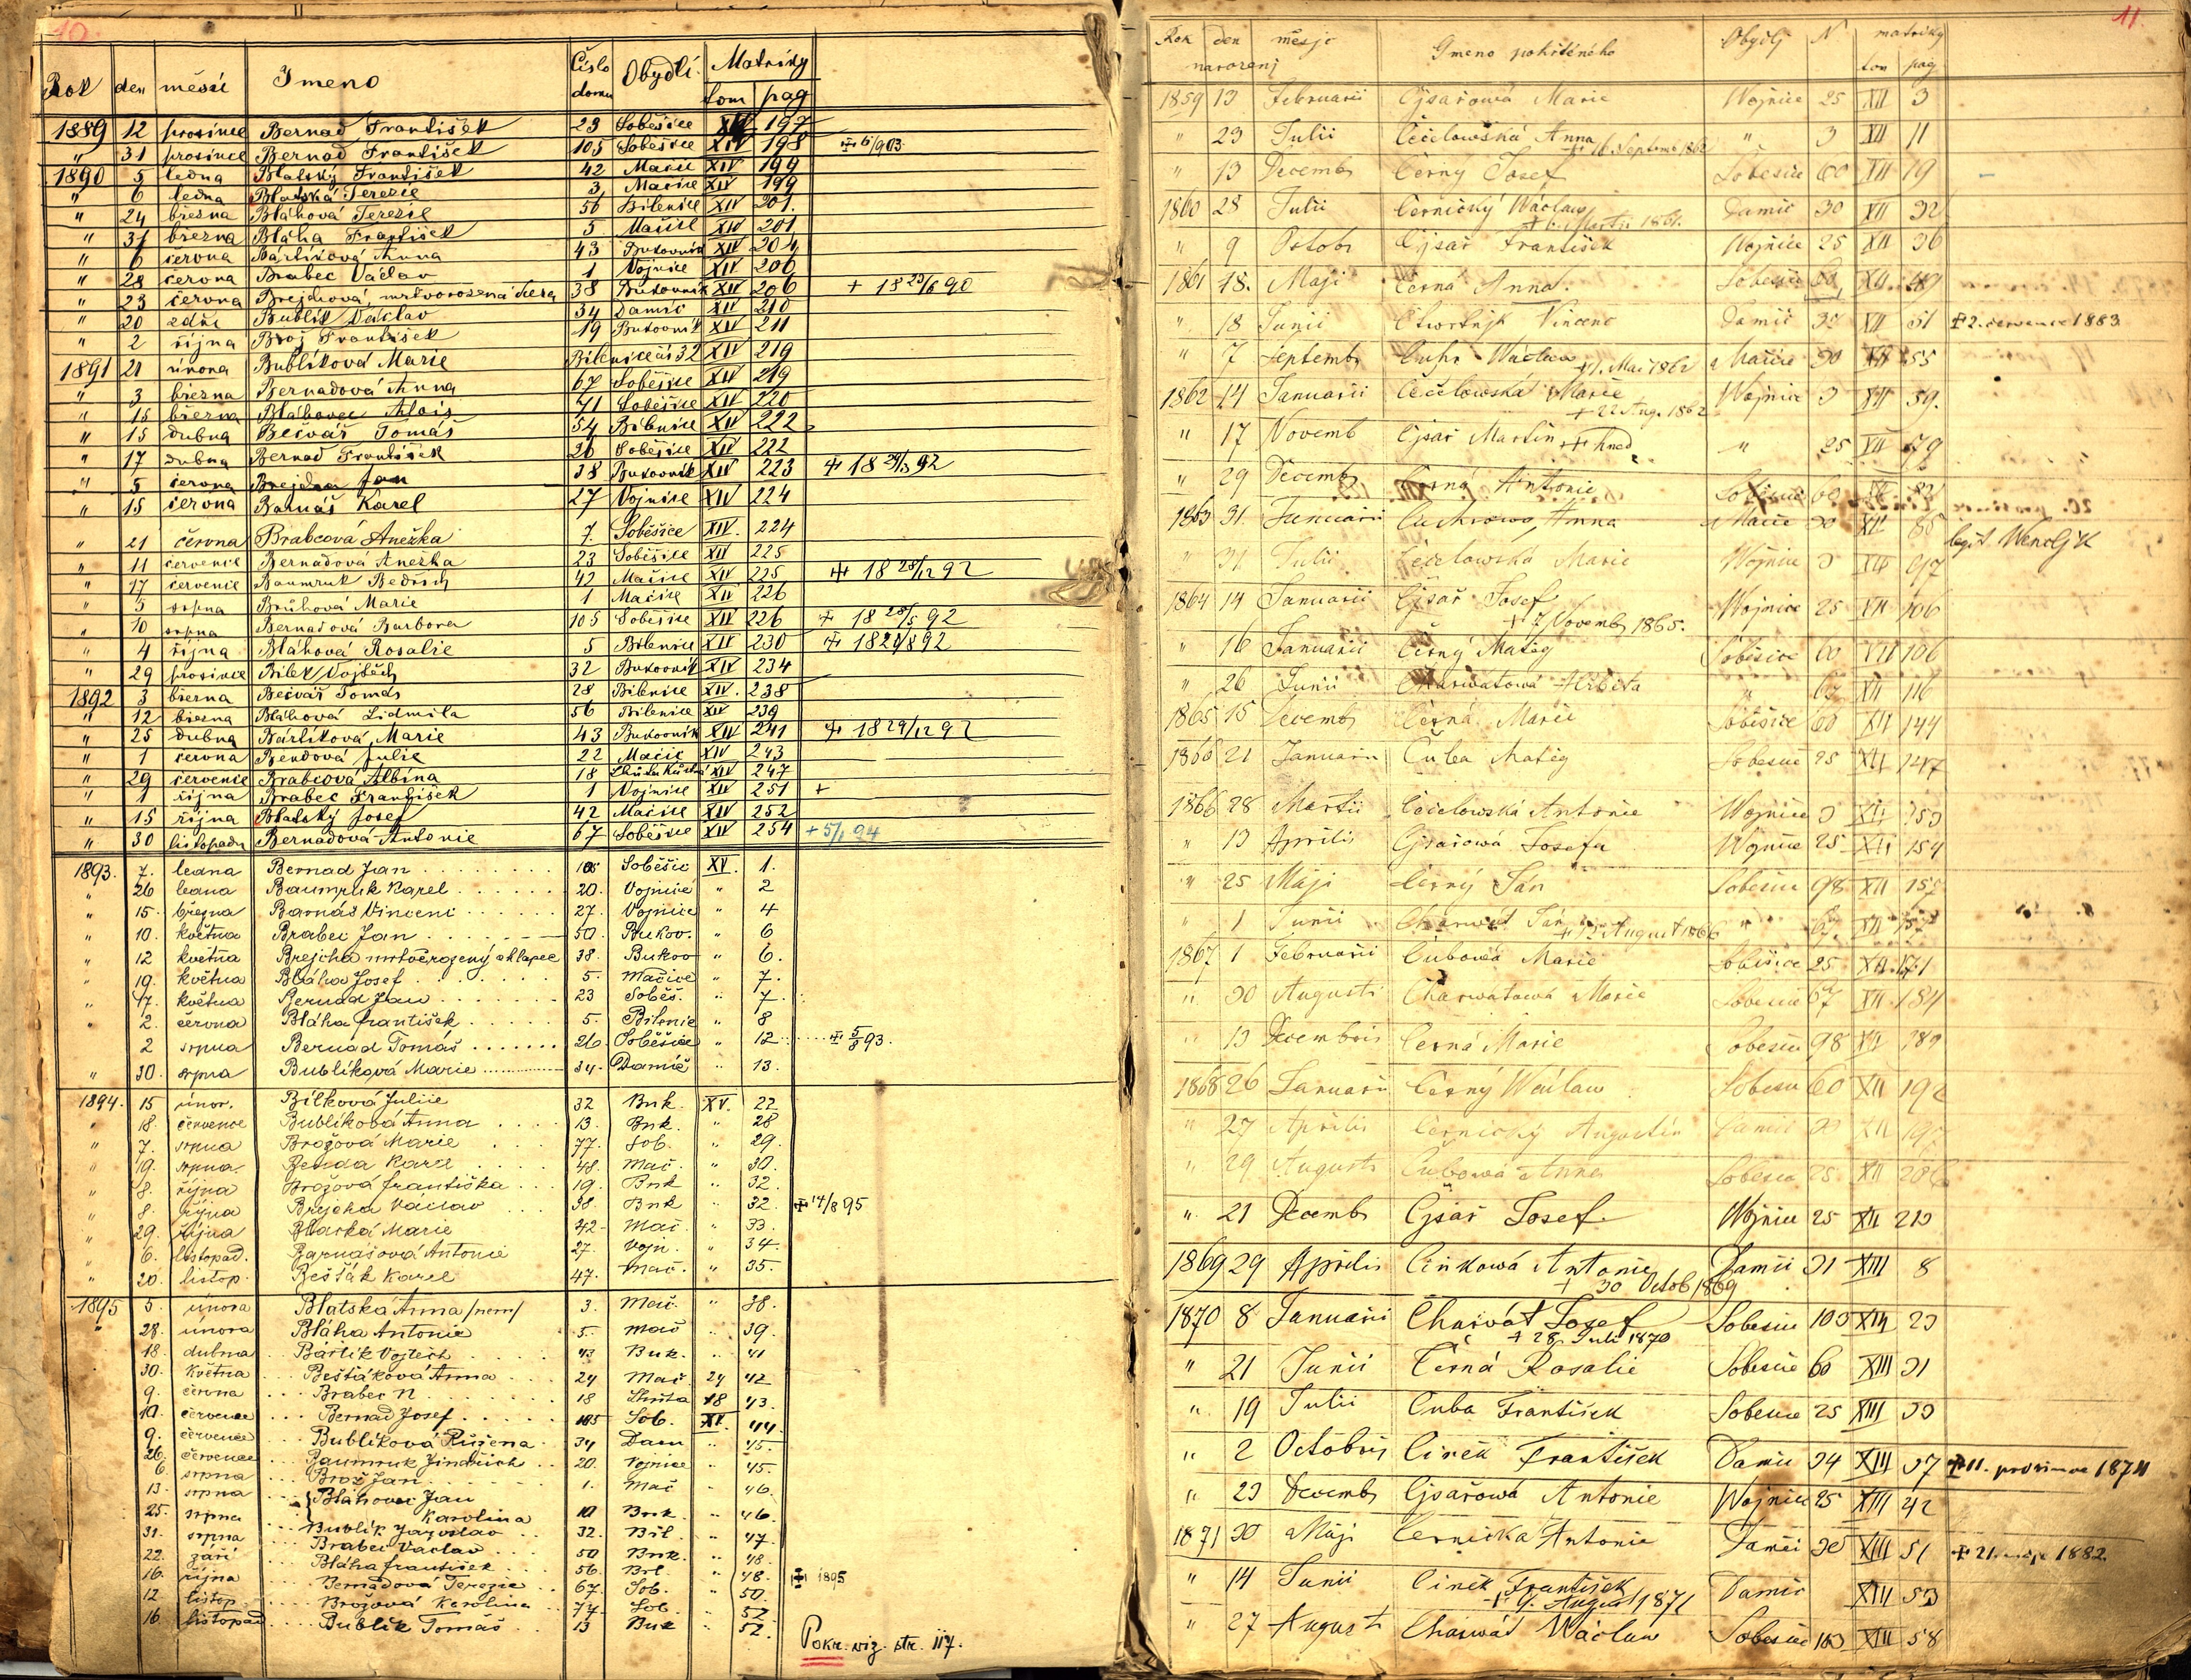 10.
Rok den měsíc Jmeno Číslo domu Obydlí Matriky tom pag
1889 12 prosince Bernad František 23 Soběšice XIV 197
" 31 prosince Bernad František 105 Soběšice XIV 198 + 6/1 903
1890 5 ledna Blatský František 42 Mačice XIV 199
" 6 ledna Blatská Terezie 3 Mačice XIV 199
" 24 března Bláhová Terezie 56 Bílenice XIV 201.
" 31 března Bláha František 5 Mačice XIV 201
" 6 června Bártíková Anna 43 Bukovník XIV 204
" 28 června Brabec Václav 1 Vojnice XIV 206
" 23 června Brejchová, mrtvorozená dcera 38 Bukovník XIV 206 + 18 23/6 90
" 20 září Bublík Václav 34 Damíč XIV 210
" 2 října Brož František 19 Bukovník XIV 211
1891 21 února Bublíková Marie Bílenice čís 32 XIV 219
" 3 března Bernadová Anna 67 Soběšice XIV 219
" 15 března Bláhovec Alois 71 Soběšice XIV 220
" 15 dubna Bečvář Tomáš 54 Bílenice XIV 222
" 17 dubna Bernad František 26 Soběšice XIV 222
" 5 června Brejcha Jan 38 Bukovník XIV 223
" 15 června Barnáš Karel 27 Vojnice XIV 224
" 21 června Brabcová Anežka 7. Soběšice XIV. 224
" 11 července Bernadová Anežka 23 Soběšice XIV 225
" 17 července Baumruk Bedřich 42 Mačice XIV 225 + 18 28/12 92
" 5 srpna Brůhová Marie 1 Mačice XIV 226
" 10 srpna Bernadová Barbora 105 Soběšice XIV 226 + 18 28/5 92
" 4 října Bláhová Rosalie 5 Bílenice XIV 230
" 29 prosince Bílek Vojtěch 32 Bukovník XIV 234
1892 3 března Bečvář Tomáš 28 Bílenice XIV. 238
" 12 března Bláhová Lidmila 56 Bílenice XIV 239
" 25 dubna Bártíková Marie 43 Bukovník XIV 241 + 18 29/12 92
" 1 června Bendová Julie 22 Mačice XIV 243
" 29 července Brabcová Albína 18 XIV 247
" 1 října Brabec František 1 Vojnice XIV 251 +
" 15 října Blatský Josef 42 Mačice XIV 252
" 30 listopadu Bernadová Antonie 67 Soběšice XIV 254 + 5/1 94
1893. 7. ledna Bernad Jan 105 Soběšic XV. 1.
" 26 ledna Baumruk Karel 20. Vojnice " 2
" 15. března Barnáš Vincenc 27. Vojnice " 4
" 10. května Brabec Jan 50. Bukov. " 6
" 12 května Brejcha mrtvěrozený chlapec 38. Bukov " 6.
" 19. května Bláha Josef 5. Mačice " 7.
" 17. května Bernad Jan 23 Soběš. " 7.
" 2. června Bláha František 5. Bílenic " 8
2 srpna Bernad Tomáš 26 Soběšice " 12 + 5/8 93.
" 30. srpna Bublíková Marie 34. Damíč " 13.
1894. 15 únor. Bílková Julie 32 Buk. XV. 22
" 18. července Bublíková Anna 13. Buk. " 28
" 7. srpna Brožová Marie 77. Sob. " 29.
" 19. srpna. Benda Karel 48. Mač. " 30.
" 8. října Brožová Františka 19. Buk " 32.
" 8. října Brejcha Václav 38. Buk " 32.
" 29. října Blatská Marie 42. Mač. " 33.
" 6. listopad. Barnášová Antonie 27. Vojn. " 34.
" 20. listop. Bešťák Karel 47. Mač. " 35.
1895 5. února Blatská Anna /nem/ 3. Mač. " 38.
28. února Bláha Antonie 5. Mač " 39.
18. dubna Bártík Vojtěch 43 Buk. " 41
30. května Bešťáková Anna 24 Mač. 24 42
9. června Brabec N. 18 Lhůta 18 43.
10. července Bernad Josef 105 Sob. XV. 44.
9. července Bublíková Růžena 34 Dam " 45.
26. července Baumruk Jindřich 20. Vojnice " 45.
6. srpna Brož Jan 1. Mač " 46.
13. srpna Bláhovec Jan
Karolina 10 Buk. " 46.
25. srpna Bublík Jaroslav 32. Bil. " 47.
31. srpna Brabec Václav 50 Buk. " 48.
22. září Bláha František 56. Bil. " 48. + 1895
16. října Bernadová Terezie 67. Sob. " 50.
12 listop. Brožová Karolina 77. Sob " 52
16. listopad Bublík Tomáš 13 Buk " 52.
Pokr. viz. str. 117.
11.
Rok den měsjc Gmeno pokřtěného Obydlj N matriky
narozenj tom pag
1859 13 Februarii Cjsařowá Marie Wojnice 25 XII 3
" 23 Julii Čečelowská Anna " 3 XII 11
+ 16 Septemb 1862
" 13 Decemb Černý Josef Soběšice 60 XII 19
1860 28 Julii Černický Wáclaw Damíč 30 XII 32
" 9 Octobr Cjsař František Wojnice 25 XII 36
1861 18. Maji Černá Anna. Soběšice 60 XII 49
" 18 Junii Čtwrtnjk Vincenc Damič XII 51 + 2. července 1883
" 7 Septemb Wáclaw Mačice 30 XII 55
+ 1. Mai 1862
1862 14 Januarii Čečelowská Marie Wojnice 3 XII 59.
+ 22 Aug. 1862
" 17 Novemb Cjsař Martin + hned " 25 XII 79
" 29 Decemb Černá Antonie Soběšice 60 XII
1863 31. Januarii Anna Mačice 30 XII 85 legit. Wendljk
" 31 Julii Čečelowská Marie Wojnice 3 XII 97
1864 14 Januarii Cjsař Josef Wojnice 25 XII 106
+ 7 Novemb 1865.
" 16 Januarii Černý Matěg Soběšice 60 XII 106
" 26 Junii Charwátowá " 67 XII 116
1865 15 Decemb Černá Marie Soběšice 60 XII 144
1866 21 Januarii Čuba Matěg Soběšice 25 XII 147
1866 28 Martii Čečelowská Antonie Wojnice 3 XII 153
" 13 Aprilis Cjsařowá Josefa Wojnice 25 XII 154
" 25 Maji Černý Ján Soběšice 98 XII
" 1 Junii Charwát Ján " 67. XII 157
+ August 1866
1867 1 Februarii Čubowá Marie Soběšice 25 XII. 171
" 30 Augusti Charwátowá Marie Soběšice 67 XII 184
" 13 Decembris Černá Marie Soběšice 98 XII 189
1868 26 Januarii Černý Wáclaw Soběšic 60 XII 192
" 27 Aprilis Černický Augustin Damič 30 XII 197
" 29 Augusti Čubowá Anna Soběšice 25 XII
" 21 Decemb Cjsař Josef. Wojnice 25 XII 213
1869 29 Aprilis Činkowá Antonie Damič 31 XIII 8
+ 30 Octob 1869
1870 8 Januarii Charwát Josef Soběšice 103 XIII 23
+ 28. Juli 1870
" 21 Junii Černá Rosalie Soběšice 60 XIII 31
" 19 Julii Čuba František Soběšice 25 XIII 33
" 2 Octobris Činěk František Damic 34 XIII 37 + 11. prosince 1874
" 23 Decemb Cjsařowá Antonie Wojnice 25 XIII 42
1871 30 Máji Černická Antonie Damči 30 XIII 51 + 21. máje 1882.
" 14 Junii Činěk František Damič XIII 53
+ 9. August 1871
" 27 August Charwát Wáclaw Soběšice 103 XIII 58